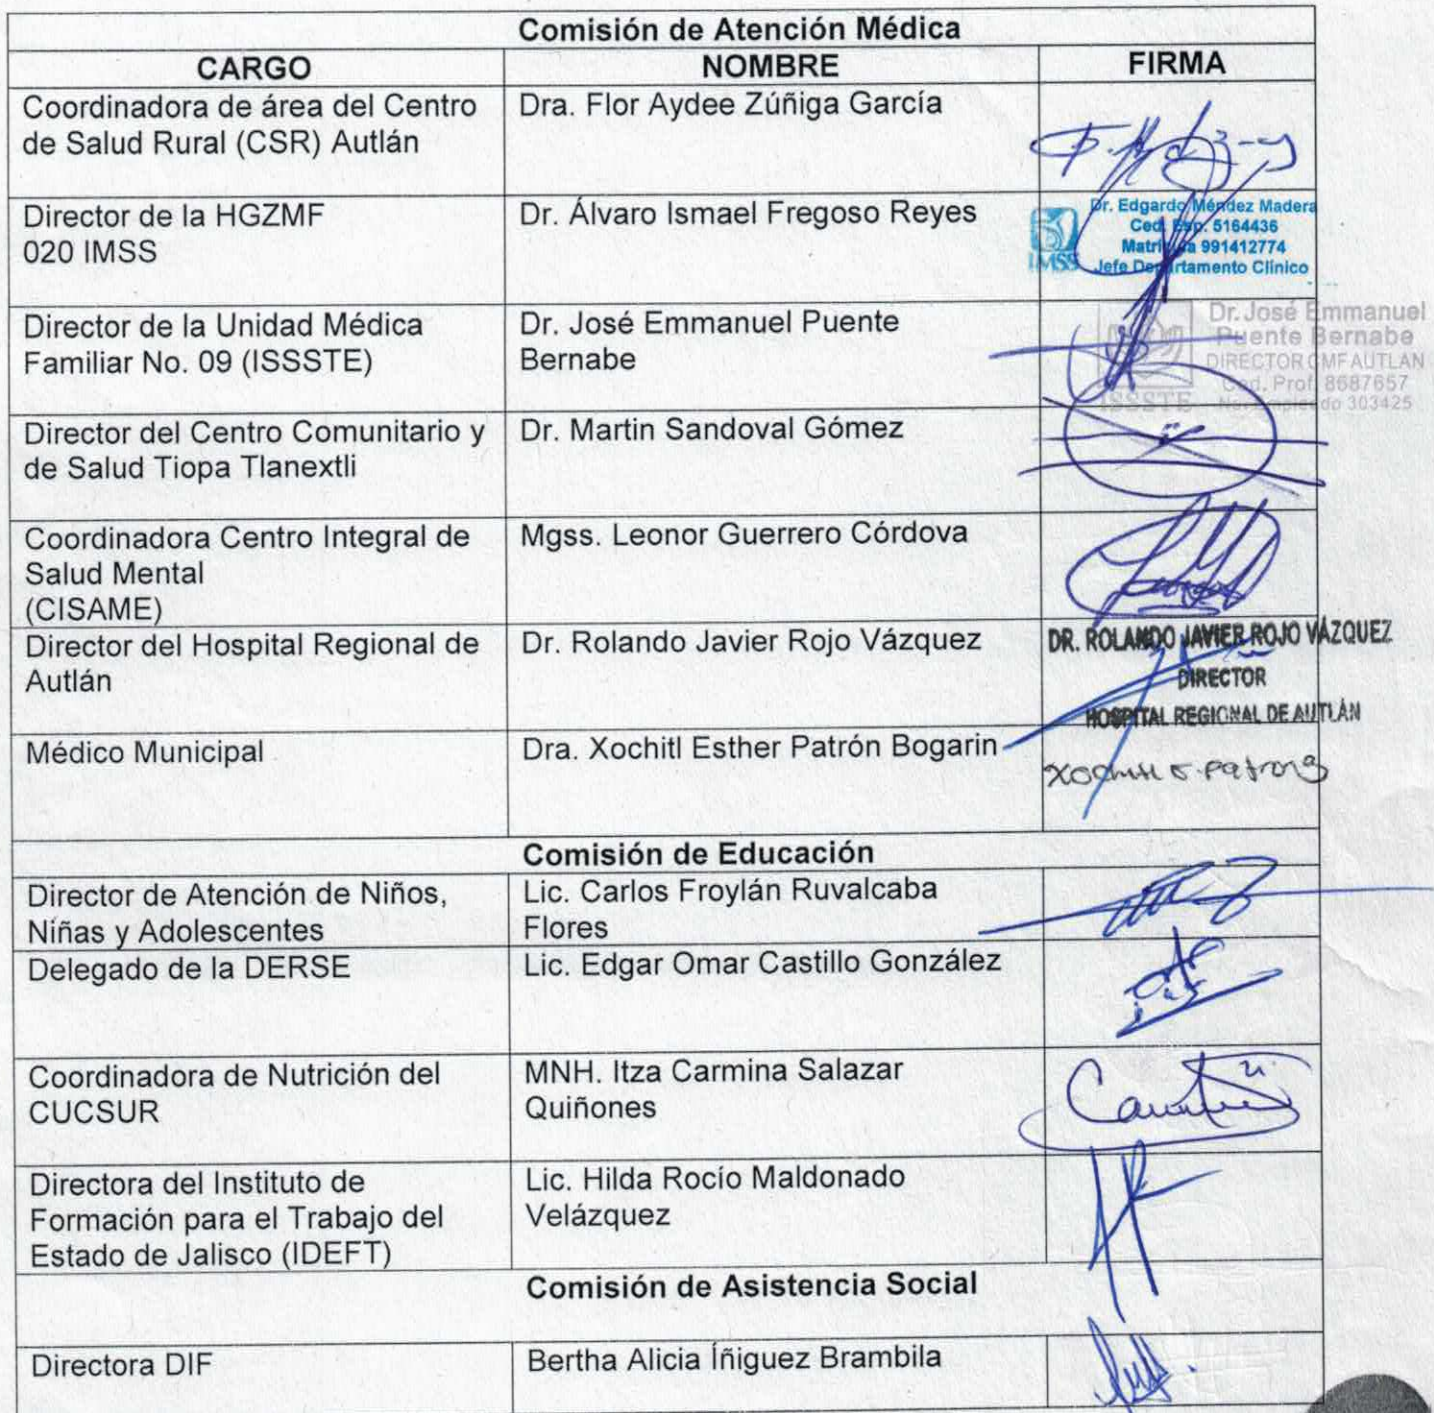 Comisión de Atención Médica
CARGO NOMBRE FIRMA
Coordinadora de área del Centro
de Salud Rural (CSR) Autlán
Dra. Flor Aydee Zúñiga García
Director de la HGZMF
020 IMSS
Dr. Álvaro Ismael Fregoso Reyes
Dr. Edgardo Méndez Madera
Ced. Esp. 5164436
Matrícula 991412774
Jefe Departamento Clínico
IMSS
Director de la Unidad Médica
Familiar No. 09 (ISSSTE)
Dr. José Emmanuel Puente
Bernabe
Dr. José Emmanuel
Puente Bernabe
DIRECTOR CMF AUTLAN
Ced. Prof. 8687657
No. Empleado 303425
ISSSTE
Director del Centro Comunitario y
de Salud Tiopa Tlanextli
Dr. Martin Sandoval Gómez
Coordinadora Centro Integral de
Salud Mental
(CISAME)
Mgss. Leonor Guerrero Córdova
Director del Hospital Regional de
Autlán
Dr. Rolando Javier Rojo Vázquez
DR. ROLANDO JAVIER ROJO VÁZQUEZ
DIRECTOR
HOSPITAL REGIONAL DE AUTLÁN
Médico Municipal
Dra. Xochitl Esther Patrón Bogarin
Comisión de Educación
Director de Atención de Niños,
Niñas y Adolescentes
Lic. Carlos Froylán Ruvalcaba
Flores
Delegado de la DERSE
Lic. Edgar Omar Castillo González
Coordinadora de Nutrición del
CUCSUR
MNH. Itza Carmina Salazar
Quiñones
Directora del Instituto de
Formación para el Trabajo del
Estado de Jalisco (IDEFT)
Lic. Hilda Rocío Maldonado
Velázquez
Comisión de Asistencia Social
Directora DIF
Bertha Alicia Íñiguez Brambila